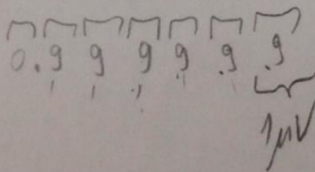 0.99999.9
1μV